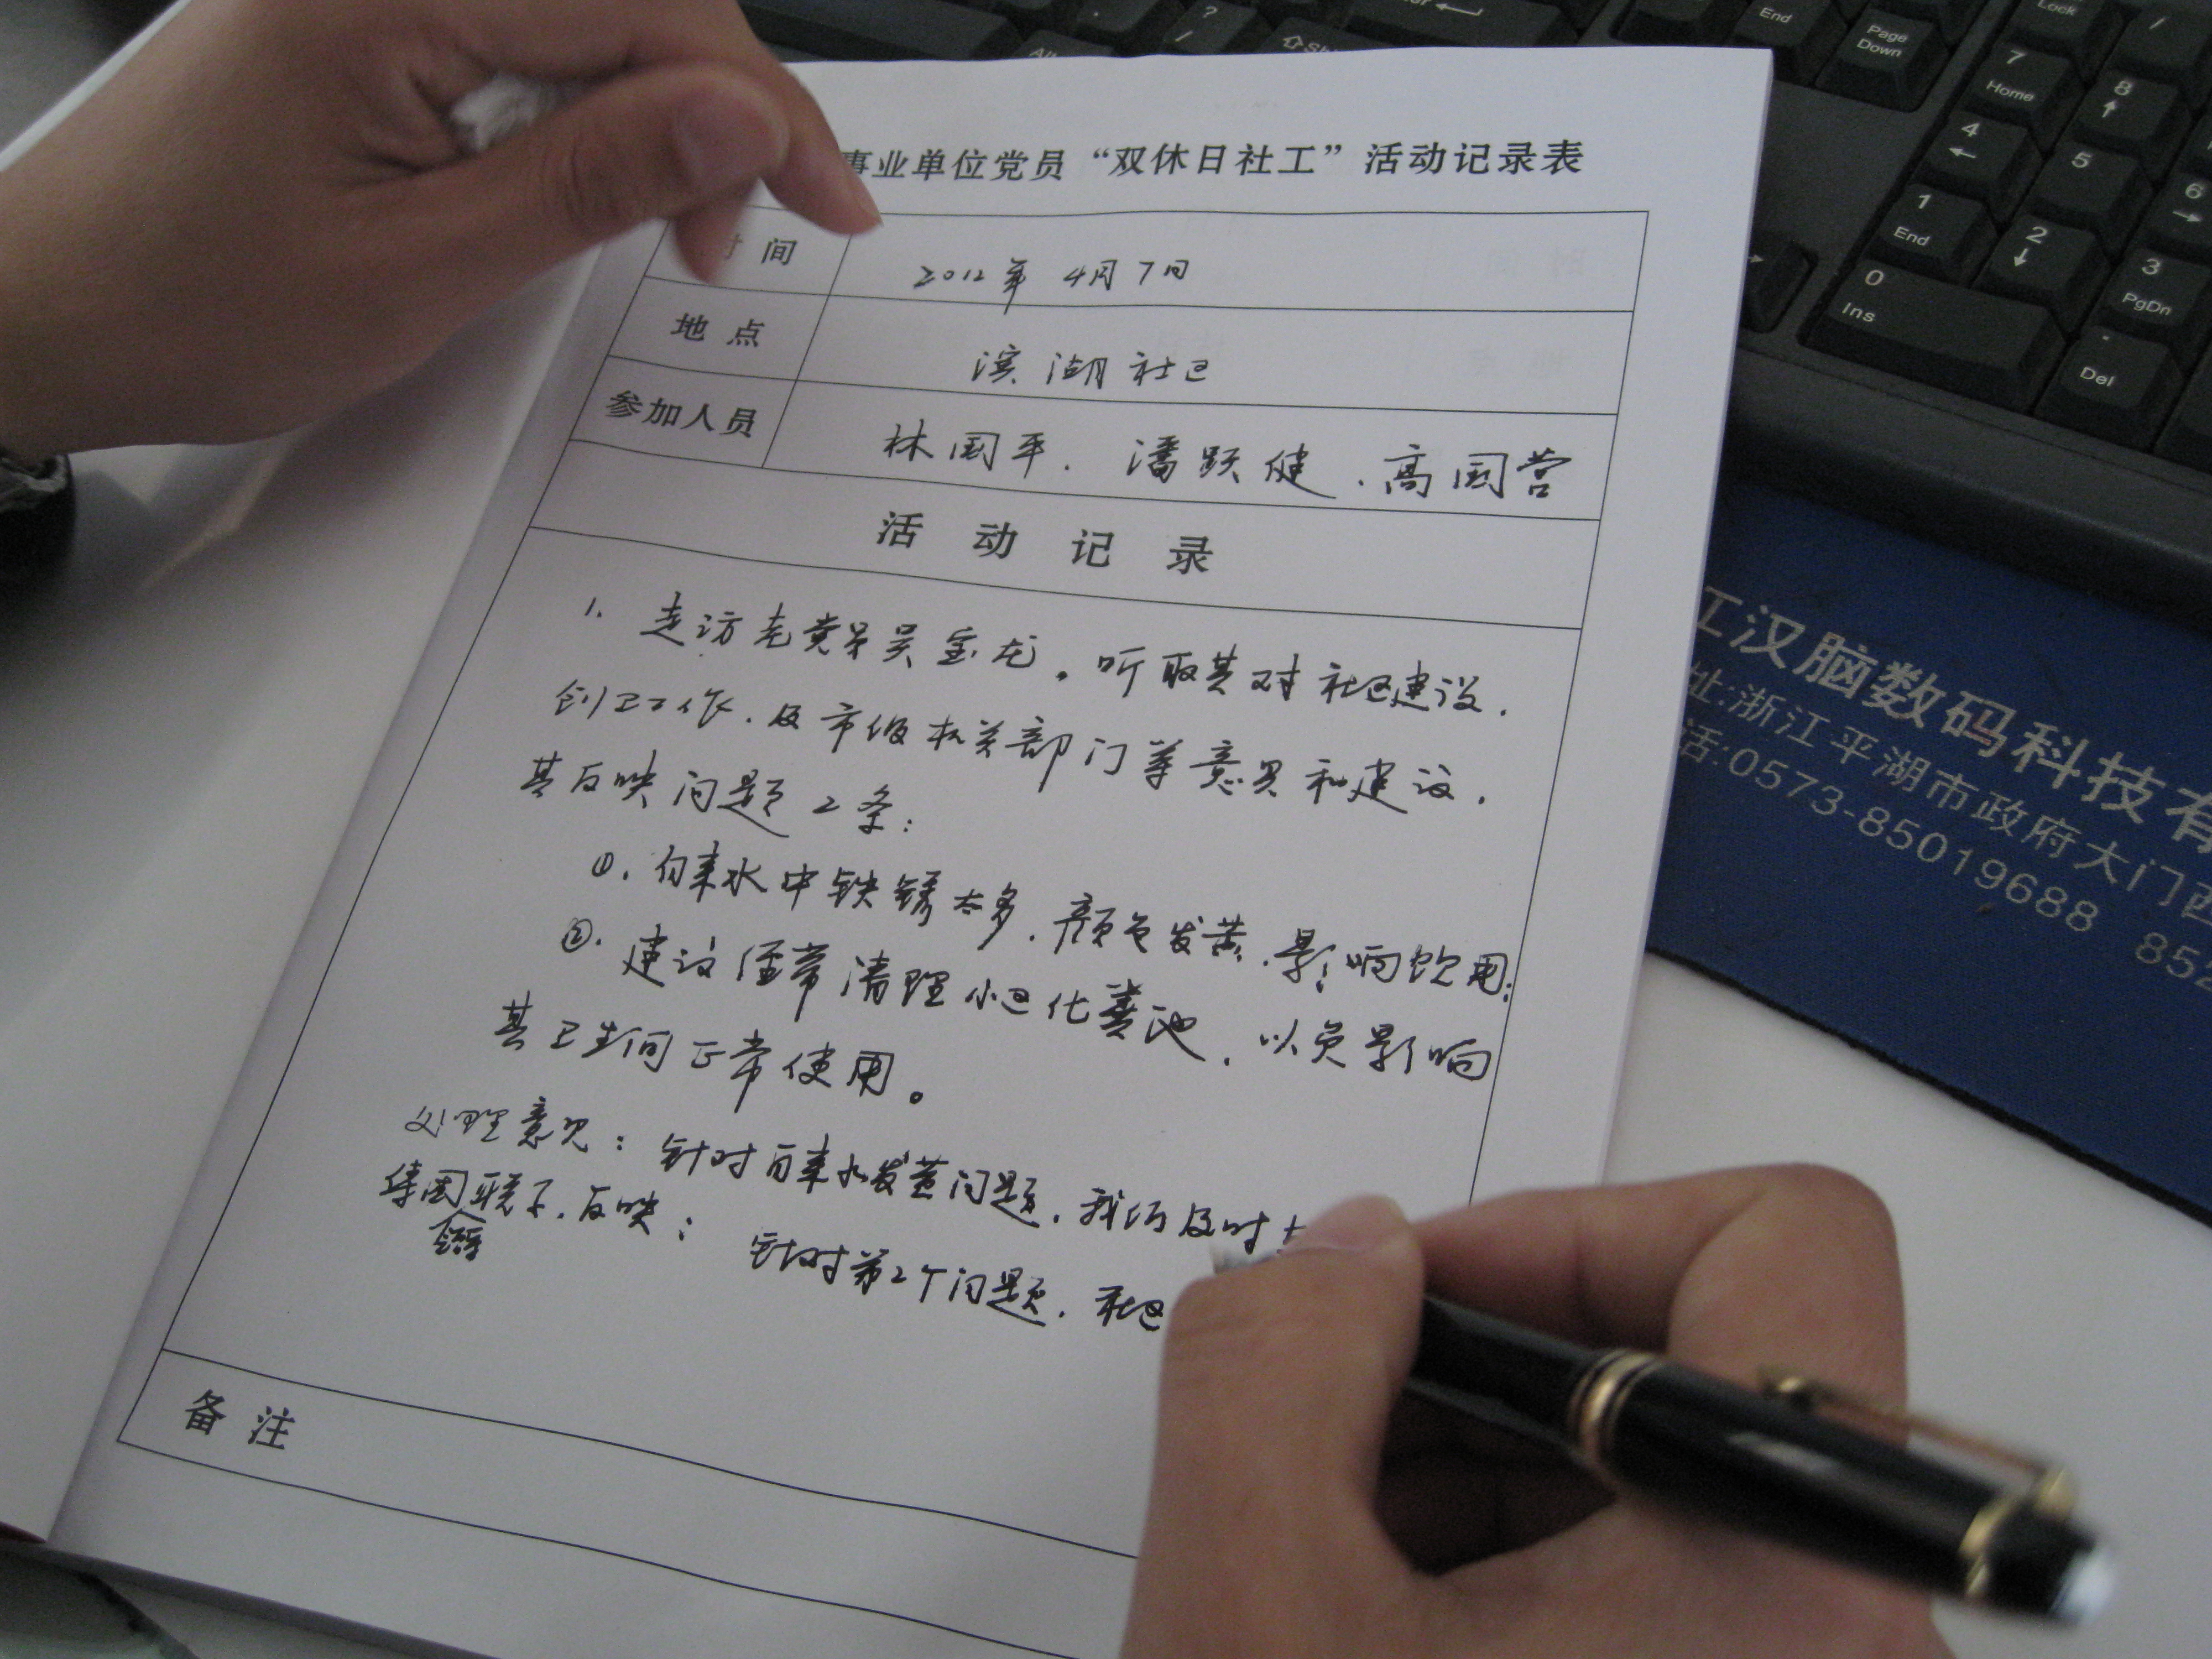 事业单位党员“双休日社工”活动记录表
时 间
2012年 4月 7日
地 点
滨湖社区
参加人员
林国平、潘跃健、高国营
活 动 记 录
1. 走访老党员吴宝龙。听取其对社区建设、
创卫工作、及市级机关部门等意见和建议,
其反映问题2条:
①. 自来水中铁锈太多,颜色发黄,影响饮用;
②. 建议经常清理小区化粪池,以免影响
其卫生间正常使用。
处理意见:针对自来水发黄问题,我们及时
反映;针对第2个问题,社区
备 注
江汉脑数码科技有
址:浙江平湖市政府大门西
话:0573-85019688 852
?
/
End
Page
Down
Lock
/
7
Home
8
↑
4
←
5
6
→
1
End
2
↓
3
PgDn
0
Ins
.
Del